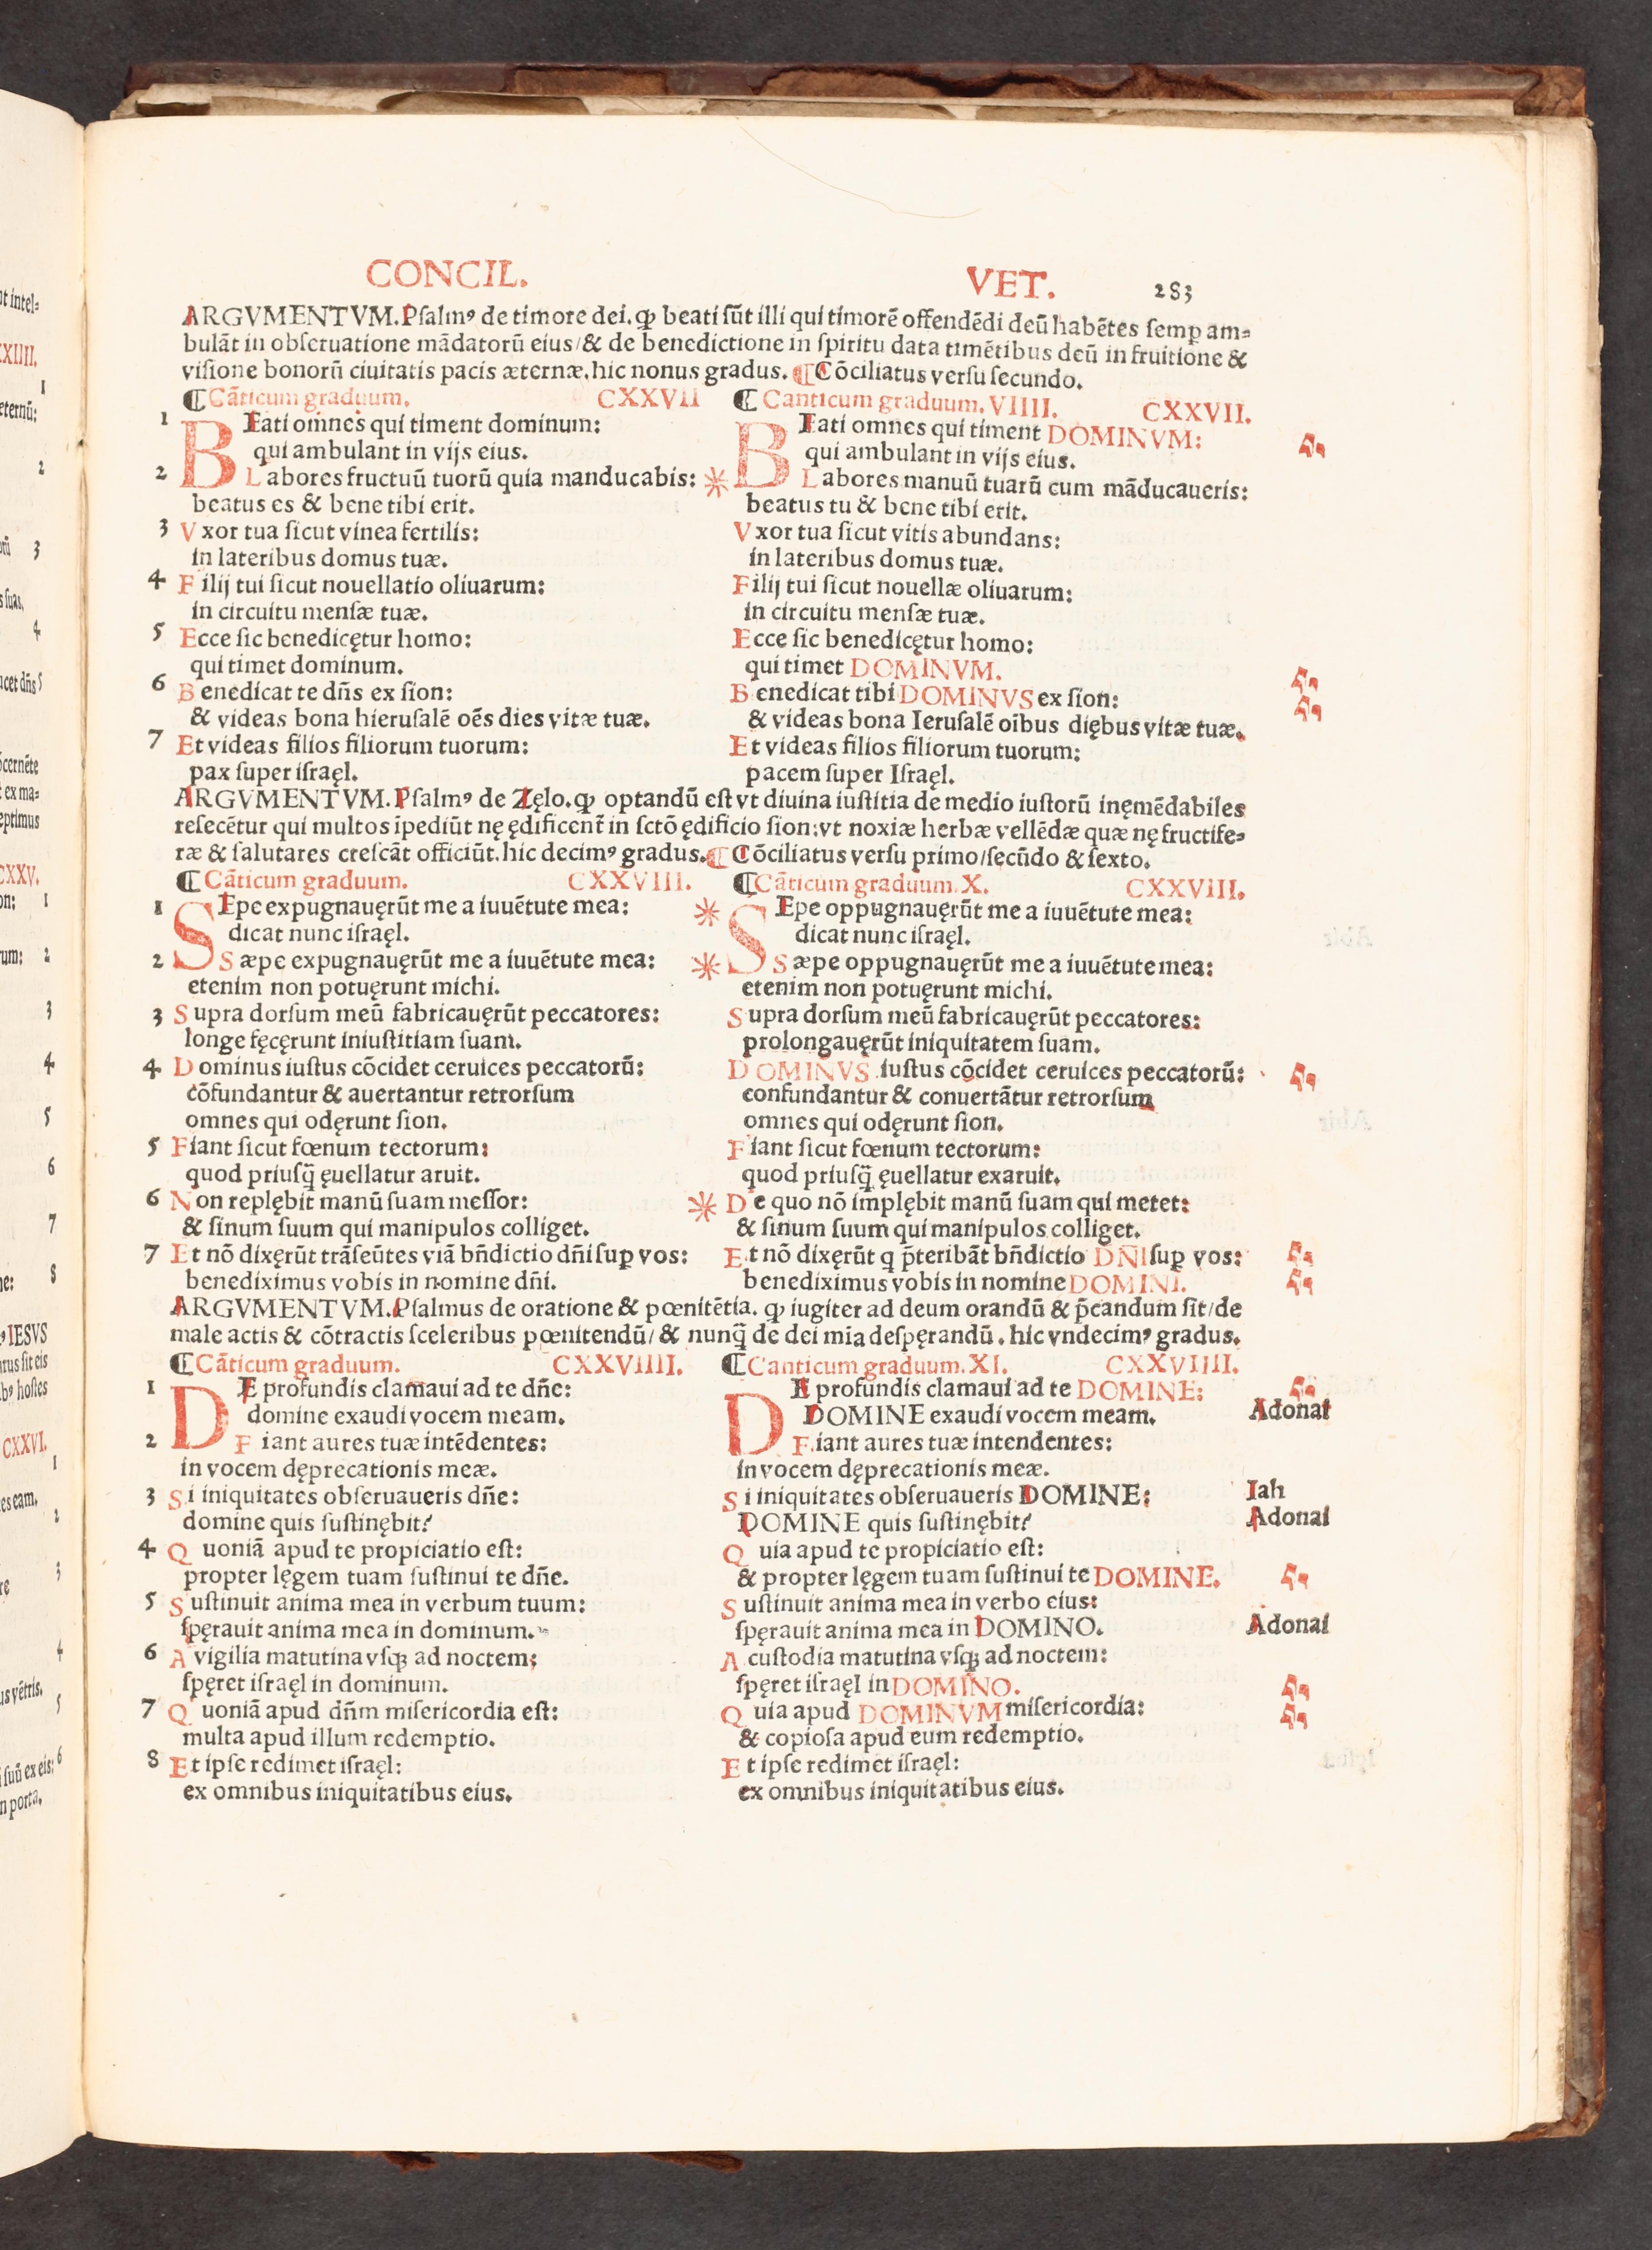 CONCIL.
VET.
283
ARGVMENTVM. Pſalmꝰ de timore dei. ꝙ beati ſūt illi qui timorē offendēdi deū habētes ſemꝑ am=
bulāt in obſeruatione mādatorū eius/ & de benedictione in ſpiritu data timētibus deū in fruitione &
viſione bonorū ciuitatis pacis æternæ. hic nonus gradus. ¶ Cōciliatus verſu ſecundo.
¶ Cāticum graduum. CXXVII
1 BEati omnes qui timent dominum:
qui ambulant in vijs eius.
2 Labores fructuū tuorū quia manducabis:
beatus es & bene tibi erit.
3 Vxor tua ſicut vinea fertilis:
in lateribus domus tuæ.
4 Filij tui ſicut nouellatio oliuarum:
in circuitu menſæ tuæ.
5 Ecce ſic benedicętur homo:
qui timet dominum.
6 Benedicat te dñs ex ſion:
& videas bona hieruſalē oēs dies vitæ tuæ.
7 Et videas filios filiorum tuorum:
pax ſuper iſraęl.
¶ Canticum graduum. VIIII. CXXVII.
BEati omnes qui timent DOMINVM:
qui ambulant in vijs eius.
* Labores manuū tuarū cum māducaueris:
beatus tu & bene tibi erit.
Vxor tua ſicut vitis abundans:
in lateribus domus tuæ.
Filij tui ſicut nouellæ oliuarum:
in circuitu menſæ tuæ.
Ecce ſic benedicętur homo:
qui timet DOMINVM.
Benedicat tibi DOMINVS ex ſion:
& videas bona Ieruſalē oībus diębus vitæ tuæ.
Et videas filios filiorum tuorum:
pacem ſuper Iſraęl.
ARGVMENTVM. Pſalmꝰ de Zęlo. ꝙ optandū eſt vt diuina iuſtitia de medio iuſtorū inęmēdabiles
reſecētur qui multos īpediūt nę ędificent̄ in ſctō ędificio ſion: vt noxiæ herbæ vellēdæ quæ nę fructife=
ræ & ſalutares creſcāt officiūt. hic decimꝰ gradus. ¶ Cōciliatus verſu primo/ſecūdo & ſexto.
¶ Cāticum graduum. CXXVIII.
1 SEpe expugnauęrūt me a iuuētute mea:
dicat nunc iſraęl.
2 Sæpe expugnauęrūt me a iuuētute mea:
etenim non potuęrunt michi.
3 Supra dorſum meū fabricauęrūt peccatores:
longe fęcęrunt iniuſtitiam ſuam.
4 Dominus iuſtus cōcidet ceruices peccatorū:
cōfundantur & auertantur retrorſum
omnes qui odęrunt ſion.
5 Fiant ſicut fœnum tectorum:
quod priuſq̄ ęuellatur aruit.
6 Non replębit manū ſuam meſſor:
& ſinum ſuum qui manipulos colliget.
7 Et nō dixęrūt trāſeūtes viā bn̄dictio dn̄i ſuꝑ vos:
benediximus vobis in nomine dn̄i.
¶ Cāticum graduum. X. CXXVIII.
* SEpe oppugnauęrūt me a iuuētute mea:
dicat nunc iſraęl.
* Sæpe oppugnauęrūt me a iuuētute mea:
etenim non potuęrunt michi.
Supra dorſum meū fabricauęrūt peccatores:
prolongauęrūt iniquitatem ſuam.
DOMINVS iuſtus cōcidet ceruices peccatorū:
confundantur & conuertātur retrorſum
omnes qui odęrunt ſion.
Fiant ſicut fœnum tectorum:
quod priuſq̄ ęuellatur exaruit.
* De quo nō implębit manū ſuam qui metet:
& ſinum ſuum qui manipulos colliget.
Et nō dixęrūt q p̄teribāt bn̄dictio DN̄I ſuꝑ vos:
benediximus vobis in nomine DOMINI.
ARGVMENTVM. Pſalmus de oratione & pœnitētia. ꝙ iugiter ad deum orandū & p̄candum ſit/ de
male actis & cōtractis ſceleribus pœnitendū/ & nunq̄ de dei mia deſpęrandū. hic vndecimꝰ gradus.
¶ Cāticum graduum. CXXVIIII.
1 DE profundis clamaui ad te dn̄e:
domine exaudi vocem meam.
2 Fiant aures tuæ intēdentes:
in vocem dęprecationis meæ.
3 Si iniquitates obſeruaueris dn̄e:
domine quis ſuſtinębit?
4 Quoniā apud te propiciatio eſt:
propter lęgem tuam ſuſtinui te dn̄e.
5 Suſtinuit anima mea in verbum tuum:
ſpęrauit anima mea in dominum.
6 A vigilia matutina vſqꝫ ad noctem:
ſpęret iſraęl in dominum.
7 Quoniā apud dn̄m miſericordia eſt:
multa apud illum redemptio.
8 Et ipſe redimet iſraęl:
ex omnibus iniquitatibus eius.
¶ Canticum graduum. XI. CXXVIIII.
DE profundis clamaui ad te DOMINE:
DOMINE exaudi vocem meam. Adonai
Fiant aures tuæ intendentes:
in vocem dęprecationis meæ.
Si iniquitates obſeruaueris DOMINE: Iah
DOMINE quis ſuſtinębit? Adonai
Quia apud te propiciatio eſt:
& propter lęgem tuam ſuſtinui te DOMINE.
Suſtinuit anima mea in verbo eius:
ſpęrauit anima mea in DOMINO. Adonai
A cuſtodia matutina vſqꝫ ad noctem:
ſpęret iſraęl in DOMINO.
Quia apud DOMINVM miſericordia:
& copioſa apud eum redemptio.
Et ipſe redimet iſraęl:
ex omnibus iniquitatibus eius.